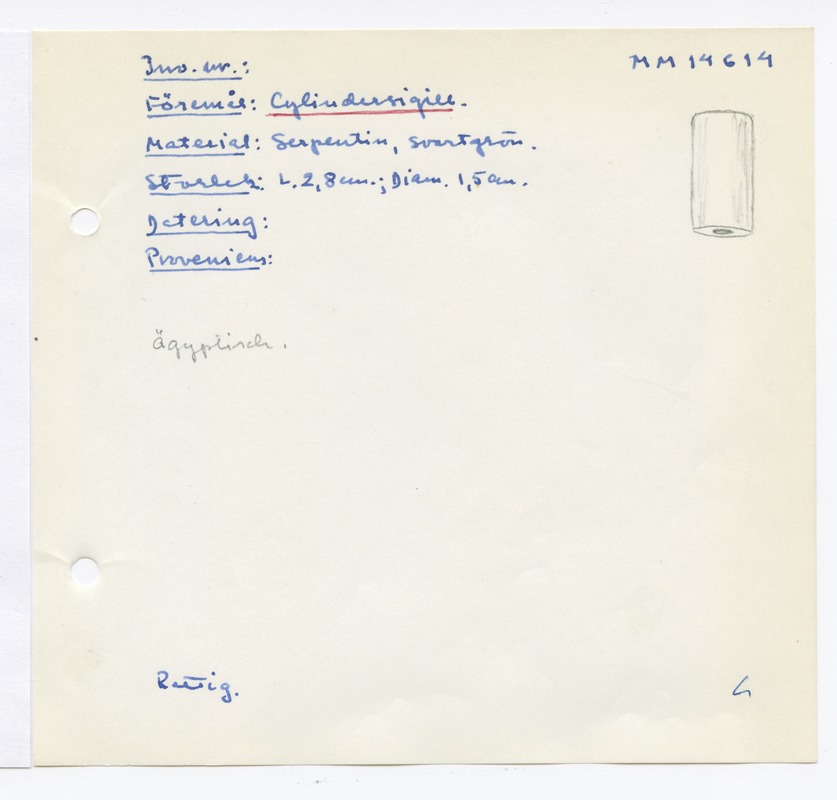 Inv.nr.: MM 14614
Föremål: Cylindersigill.
Material: Serpentin, svartgrön.
Storlek: L. 2,8 cm.; Diam. 1,5 cm.
Datering:
Proveniens:
Ägyptisch.
Rettig.